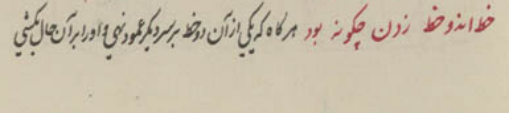 خط اندو خط زدن چکونه بود هرگاه که یکی از آن دو خط بر سر دیگر عمود نهی و او را بر آن حال بکشی